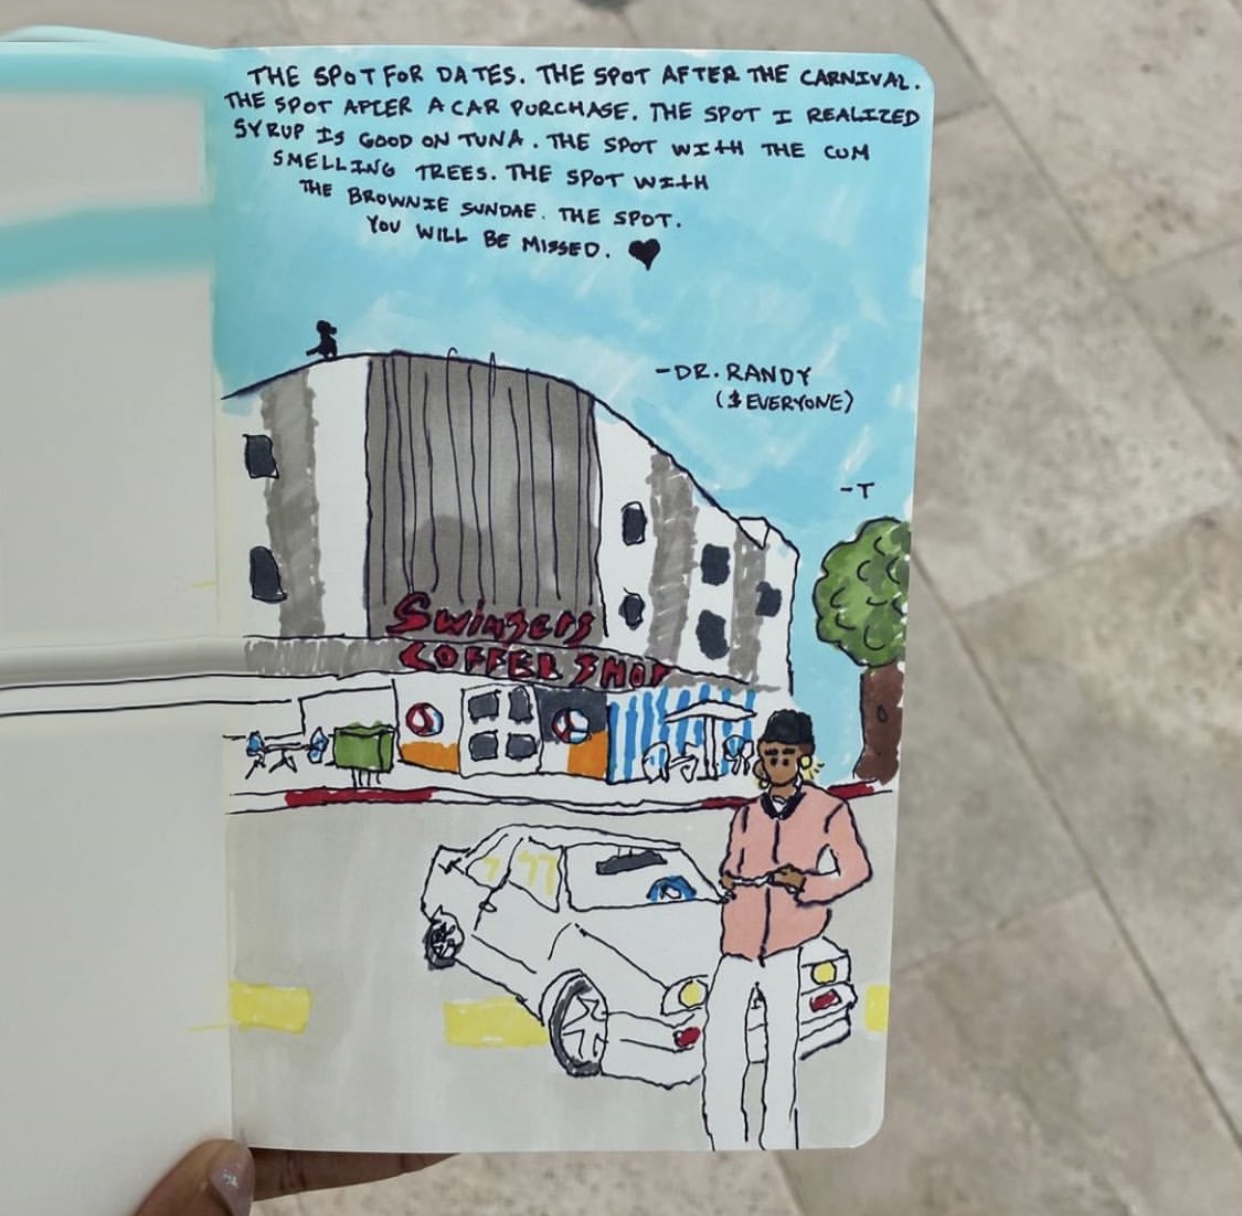 THE SPOT FOR DATES. THE SPOT AFTER THE CARNIVAL.
THE SPOT AFTER A CAR PURCHASE. THE SPOT I REALIZED
SYRUP IS GOOD ON TUNA. THE SPOT WITH THE CUM
SMELLING TREES. THE SPOT WITH
THE BROWNIE SUNDAE. THE SPOT.
YOU WILL BE MISSED. ♥
-DR. RANDY
($ EVERYONE)
-T
Swingers
COFFEE SHOP